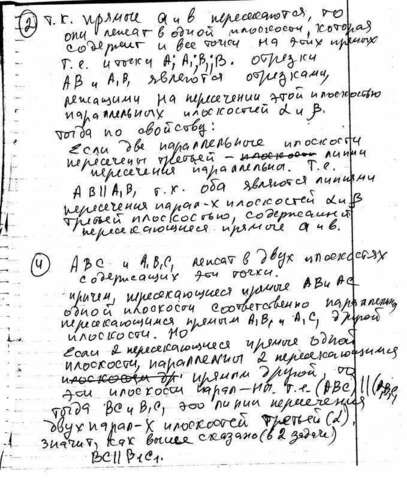 ② т.к. прямые a и b пересекаются, то
они лежат в одной плоскости, которая
содержит и все точки на этих прямых
т.е. и точки A; A₁; B₁; B. отрезки
AB и A₁B₁ являются отрезками,
лежащими на пересечении этой плоскостью
параллельных плоскостей α и β.
тогда по свойству:
Если две параллельные плоскости
пересечены третьей – линии
пересечения параллельны. Т.е.
AB || A₁B₁ т.к. оба являются линиями
пересечения парал-х плоскостей α и β
третьей плоскостью, содержащей
пересекающиеся прямые a и b.
④ ABC и A₁B₁C₁ лежат в двух плоскостях
содержащих эти точки.
причем, пересекающиеся прямые AB и AC
одной плоскости соответственно параллельны
пересекающимся прямым A₁B₁ и A₁C₁ другой
плоскости. Но
Если 2 пересекающиеся прямые одной
плоскости, параллельны 2 пересекающимся
прямым другой, то
эти плоскости парал-ны. т.е. (ABC) || (A₁B₁C₁)
тогда BC и B₁C₁ это линии пересечения
двух парал-х плоскостей третьей (α).
значит, как выше сказано (в 2 задаче)
BC || B₁C₁.